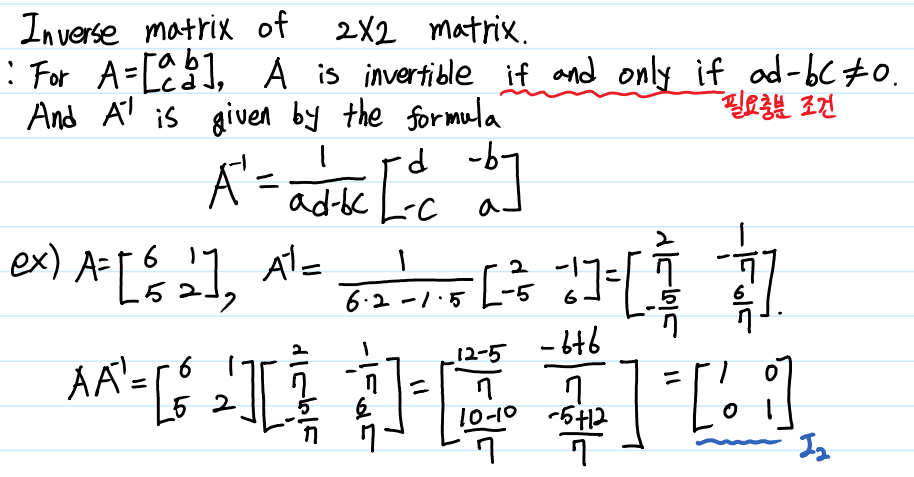 Inverse matrix of 2x2 matrix.
: For A=[a b; c d], A is invertible if and only if ad-bc≠0.
필요충분 조건
And A⁻¹ is given by the formula
A⁻¹ = 1/(ad-bc) [d -b; -c a]
ex) A=[6 1; 5 2], A⁻¹= 1/(6·2-1·5) [2 -1; -5 6]=[2/7 -1/7; -5/7 6/7].
AA⁻¹=[6 1; 5 2][2/7 -1/7; -5/7 6/7] = [(12-5)/7 (-6+6)/7; (10-10)/7 (-5+12)/7] = [1 0; 0 1]
I₂